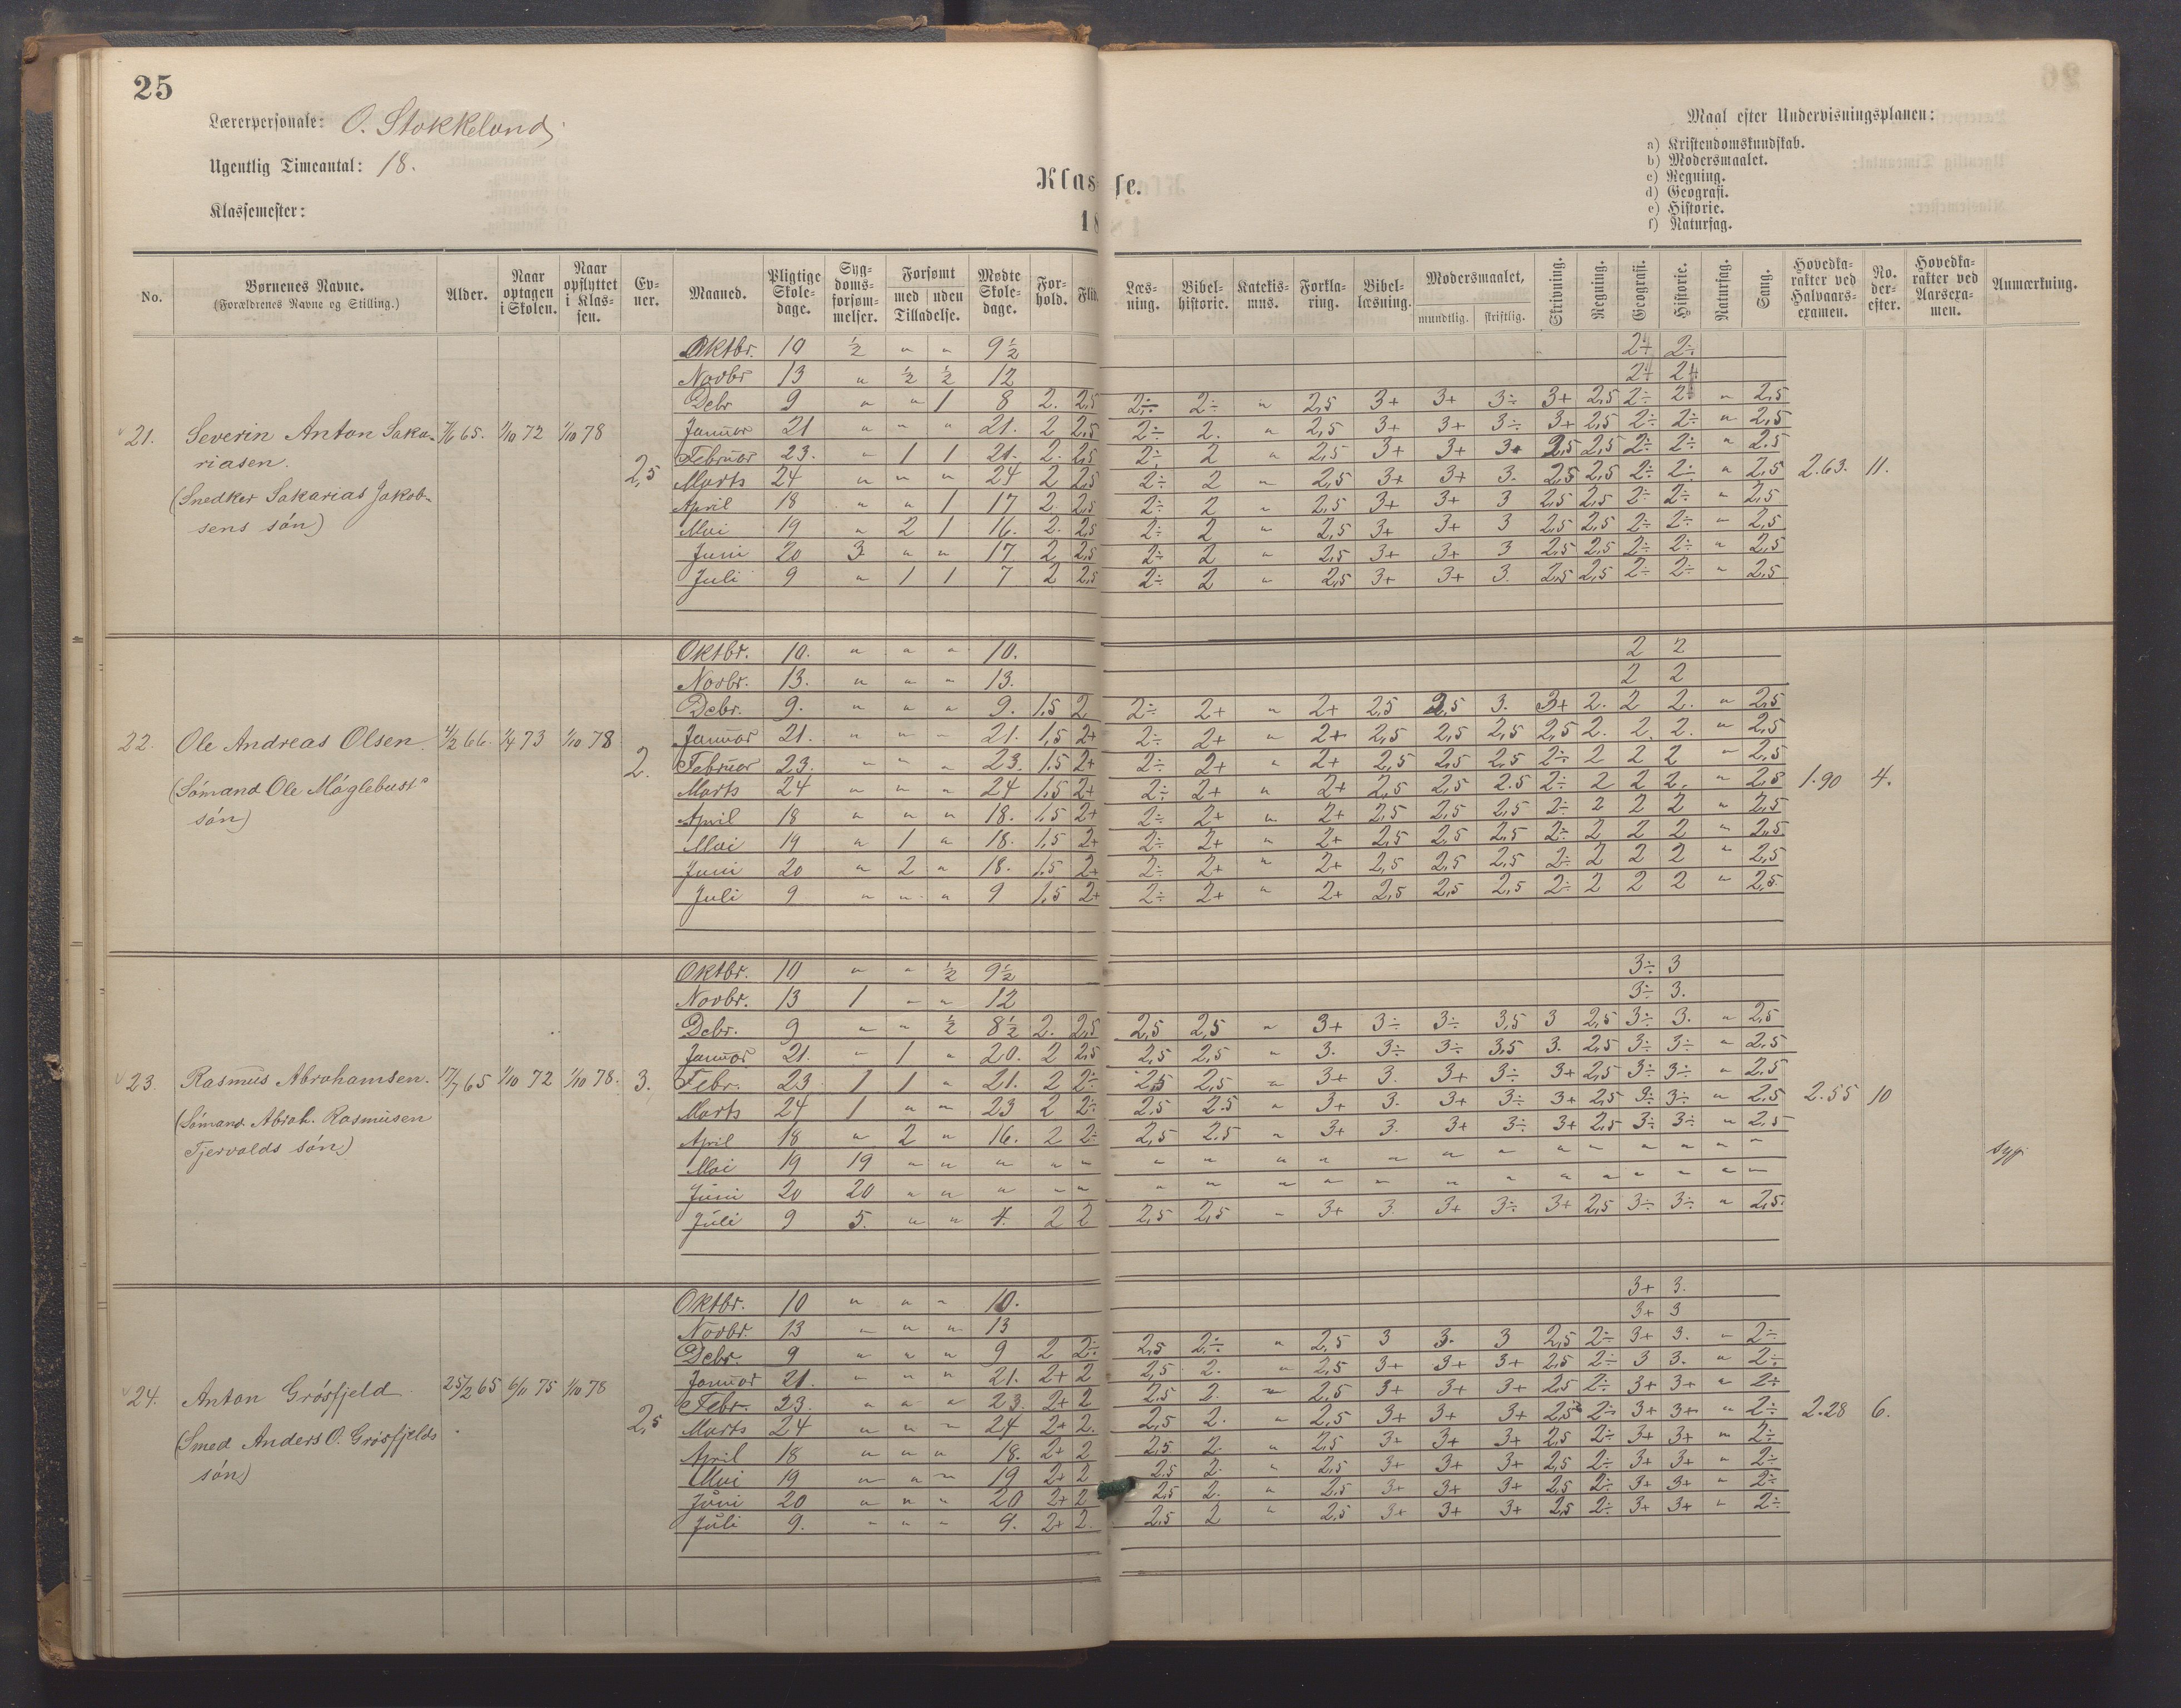 25
Lærerpersonale: O. Stokkeland.
Ugentlig Timeantal: 18.
Klassemester:
Klasse.
18
Maal efter Undervisningsplanen:
a) Kristendomskundskab.
b) Modersmaalet.
c) Regning.
d) Geografi.
e) Historie.
f) Naturfag.
No. | Børnenes Navne. (Forældrenes Navne og Stilling.) | Alder. | Naar optagen i Skolen. | Naar opflyttet i Klassen. | Evner. | Maaned. | Pligtige Skoledage. | Sygdomsforsømmelser. | Forsømt med / uden Tilladelse. | Mødte Skoledage. | Forhold. | Flid. | Læsning. | Bibelhistorie. | Katekismus. | Forklaring. | Bibellæsning. | Modersmaalet, mundtlig. | skriftlig. | Skrivning. | Regning. | Geografi. | Historie. | Naturfag. | Sang. | Hovedkarakter ved Halvaarsexamen. | No. derefter. | Hovedkarakter ved Aarsexamen. | Anmærkning.
21. Severin Anton Sakariasen. (Snedker Sakarias Jakobsens søn) 65. 1/10 72 1/10 78 2,5 2.63. 11.
Oktbr. 10 ½ " " 9½ 2+ 2÷
Novbr 13 " ½ ½ 12 2+ 2+
Debr 9 " " 1 8 2. 2,5 2÷ 2÷ " 2,5 3+ 3+ 3÷ 3+ 2,5 2÷ 2+ " 2,5
Januar 21 " " " 21. 2 2,5 2÷ 2. " 2,5 3+ 3+ 3÷ 3+ 2,5 2÷ 2÷ " 2,5
Februar 23. " 1 1 21. 2. 2,5 2÷ 2 " 2,5 3+ 3+ 3+ 2,5 2,5 2÷ 2÷ " 2,5
Marts 24 " " " 24 2 2,5 2÷ 2 " 2,5 3+ 3+ 3. 2,5 2,5 2÷ 2÷ " 2,5
April 18 " " 1 17 2. 2,5 2÷ 2 " 2,5 3+ 3+ 3 2,5 2,5 2÷ 2÷ " 2,5
Mai 19 " 2 1 16. 2. 2,5 2÷ 2 " 2,5 3+ 3+ 3 2,5 2,5 2÷ 2÷ " 2,5
Juni 20 3 " " 17. 2 2,5 2÷ 2 " 2,5 3+ 3+ 3 2,5 2,5 2÷ 2÷ " 2,5
Juli 9 " 1 1 7 2 2,5 2÷ 2 " 2,5 3+ 3+ 3. 2,5 2,5 2÷ 2÷ " 2,5
22. Ole Andreas Olsen. (Sømand Ole Møglebust's søn) 66. 73 1/10 78 2. 1.90 4.
Oktbr. 10. " " " 10. 2 2
Novbr. 13. " " " 13. 2 2
Debr. 9. " " " 9. 1,5 2 2÷ 2+ " 2+ 2,5 2,5 3. 3+ 2. 2 2. " 2,5
Januar 21. " " " 21. 1,5 2+ 2÷ 2+ " 2+ 2,5 2,5 2,5 2,5 2. 2. 2. " 2,5
Februar 23. " " " 23. 1,5 2+ 2÷ 2+ " 2+ 2,5 2,5 2,5 2÷ 2 2 2 " 2,5
Marts 24 " " " 24 1,5 2+ 2÷ 2+ " 2+ 2,5 2,5 2.5 2÷ 2 2 2. " 2,5
April 18 " " " 18. 1,5 2+ 2÷ 2+ " 2+ 2,5 2,5 2,5 2÷ 2 2 2 " 2,5
Mai 19 " 1 " 18. 1,5 2+ 2÷ 2+ " 2+ 2,5 2,5 2,5 2÷ 2 2 2 " 2,5
Juni 20 " 2 " 18. 1,5 2+ 2÷ 2+ " 2+ 2,5 2,5 2,5 2÷ 2 2 2 " 2,5
Juli 9 " " " 9 1,5 2+ 2÷ 2+ " 2+ 2,5 2,5 2,5 2÷ 2 2 2 " 2,5
23. Rasmus Abrahamsen. (Sømand Abrah. Rasmusen Tjervolds søn) 17/7 65 1/10 72 1/10 78. 3. 2.55 10 syg.
Oktbr. 10 " " ½ 9½ 3÷ 3
Novbr. 13 1 " " 12 3÷ 3.
Debr. 9 " " ½ 8½ 2. 2,5 2,5 2,5 " 3+ 3÷ 3÷ 3,5 3 2,5 3÷ 3. " 2,5
Januar 21. " 1 " 20. 2 2,5 2,5 2,5 " 3. 3÷ 3÷ 3,5 3. 2,5 3÷ 3÷ " 2,5
Febr. 23 1 1 " 21. 2 2÷ 2,5 2,5 " 3+ 3. 3+ 3÷ 3+ 2,5 3÷ 3÷ " 2,5
Marts 24 1 " " 23 2 2÷ 2,5 2.5 " 3+ 3. 3+ 3÷ 3+ 2,5 3÷ 3÷ " 2,5
April 18 " 2 " 16. 2 2÷ 2,5 2.5 " 3+ 3. 3+ 3÷ 3+ 2,5 3÷ 3÷ " 2,5
Mai 19 19 " " " " " " " " " " " " " " " " " "
Juni 20 20 " " " " " " " " " " " " " " " " " "
Juli 9 5. " " 4. 2 2 2,5 2,5 " 3+ 3. 3+ 3÷ 3+ 2,5 3÷ 3÷ " 2,5.
24. Anton Grøsfjeld. (Smed Anders O. Grøsfjelds søn) 25/2 65 6/11 75 1/10 78 2,5 2.28 6.
Oktbr. 10 " " " 10. 3+ 3.
Novbr. 13 " " " 13 3+ 3
Debr. 9 " " " 9 2 2÷ 2,5 2÷ " 2,5 3 3. 3 2,5 2÷ 3+ 3. " 2÷
Januar 21. " " " 21. 2+ 2 2,5 2. " 2,5 3+ 3+ 3+ 2,5 2÷ 3 3. " 2÷
Febr. 23. " " " 23. 2+ 2 2,5 2. " 2,5 3+ 3+ 3+ 2,5 2÷ 3+ 3+ " 2÷
Marts 24 " " " 24 2+ 2. 2,5 2. " 2,5 3+ 3+ 3+ 2,5 2÷ 3+ 3+ " 2÷
April 18 " " " 18. 2+ 2 2,5 2. " 2,5 3+ 3+ 3+ 2,5 2÷ 3+ 3+ " 2÷
Mai 19 " " " 19 2+ 2 2,5 2. " 2,5 3+ 3+ 3+ 2,5 2÷ 3+ 3+ " 2÷
Juni 20 " " " 20 2+ 2 2,5 2. " 2,5 3+ 3+ 3+ 2,5 2÷ 3+ 3+ " 2÷
Juli 9. " " " 9. 2+ 2. 2,5 2 " 2,5 3+ 3+ 3+ 2,5 2÷ 3+ 3+ " 2÷